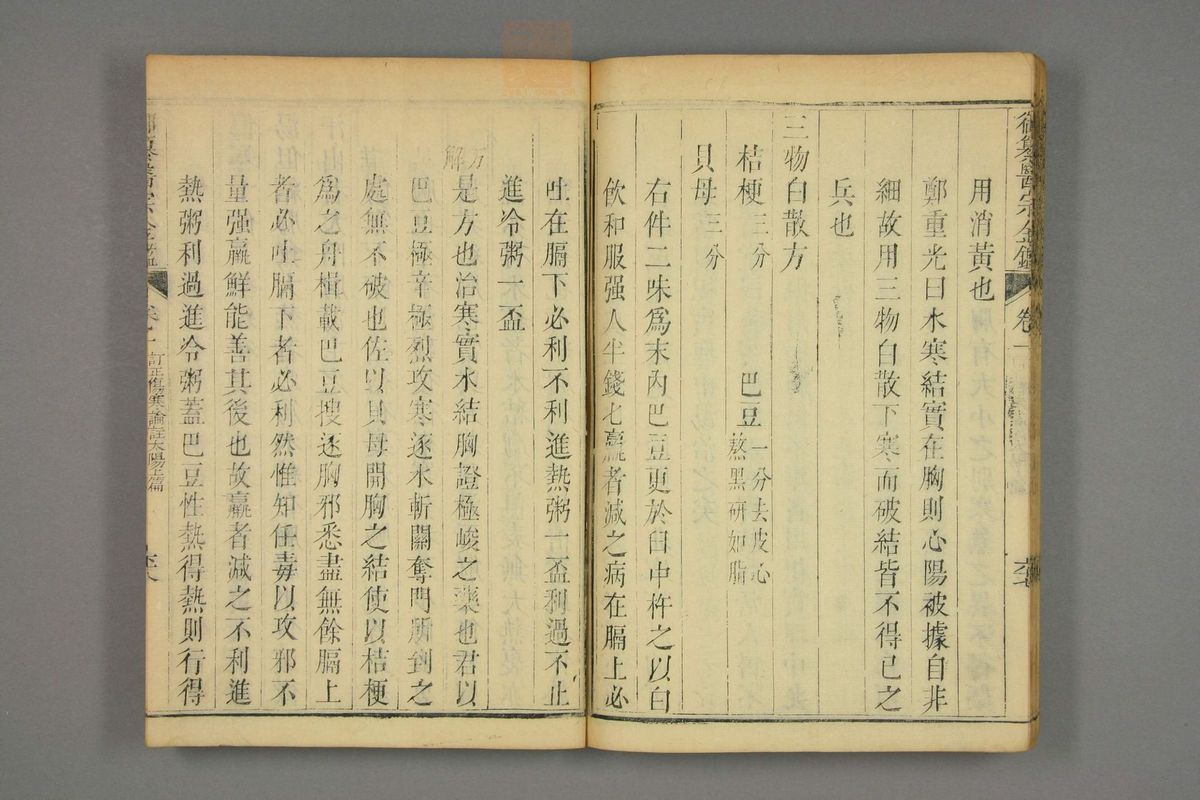 御纂醫宗金鑑 卷一
用消黃也
鄭重光曰水寒結實在胸則心陽被據自非
細故用三物白散下寒而破結皆不得已之
兵也
三物白散方
桔梗三分 巴豆一分去皮心熬黑研如脂
貝母三分
右件二味爲末內巴豆更於臼中杵之以白
飲和服强人半錢匕羸者減之病在膈上必
吐在膈下必利不利進熱粥一盃利過不止
進冷粥一盃
方解
是方也治寒實水結胸證極峻之藥也君以
巴豆極辛極烈攻寒逐水斬關奪門所到之
處無不破也佐以貝母開胸之結使以桔梗
爲之舟楫載巴豆搜逐胸邪悉盡無餘膈上
者必吐膈下者必利然惟知任毒以攻邪不
量强羸鮮能善其後也故羸者減之不利進
熱粥利過進冷粥蓋巴豆性熱得熱則行得
御纂醫宗金鑑 卷一 訂正傷寒論註太陽上篇